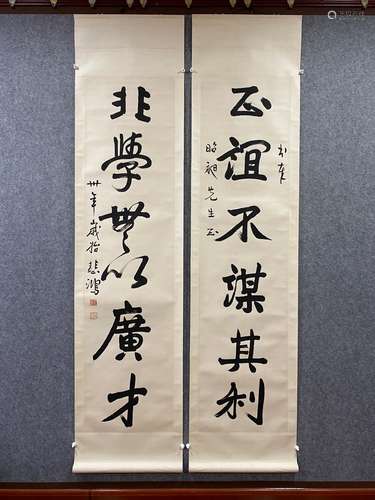 書奉
正誼不謀其利
昭 先生正
非學無以廣才
卅年歲 悲鴻